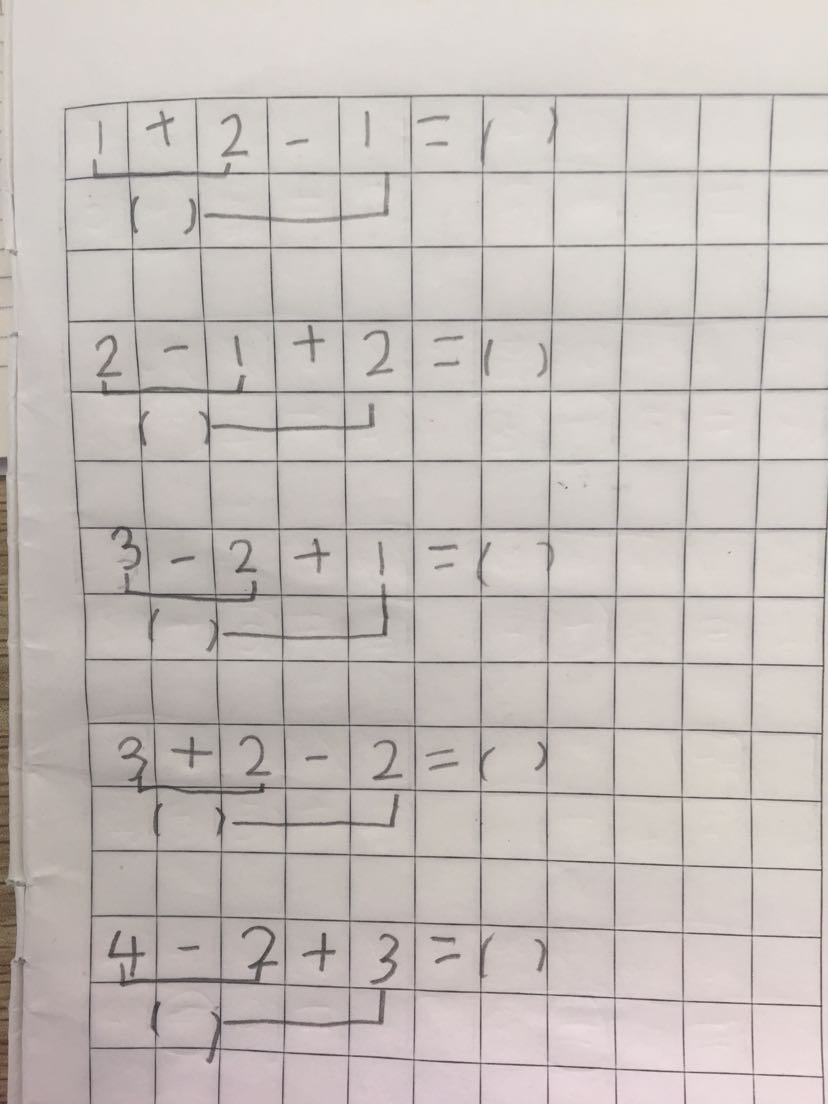 1 + 2 - 1 = ( )
( )
2 - 1 + 2 = ( )
( )
3 - 2 + 1 = ( )
( )
3 + 2 - 2 = ( )
( )
4 - 7 + 3 = ( )
( )